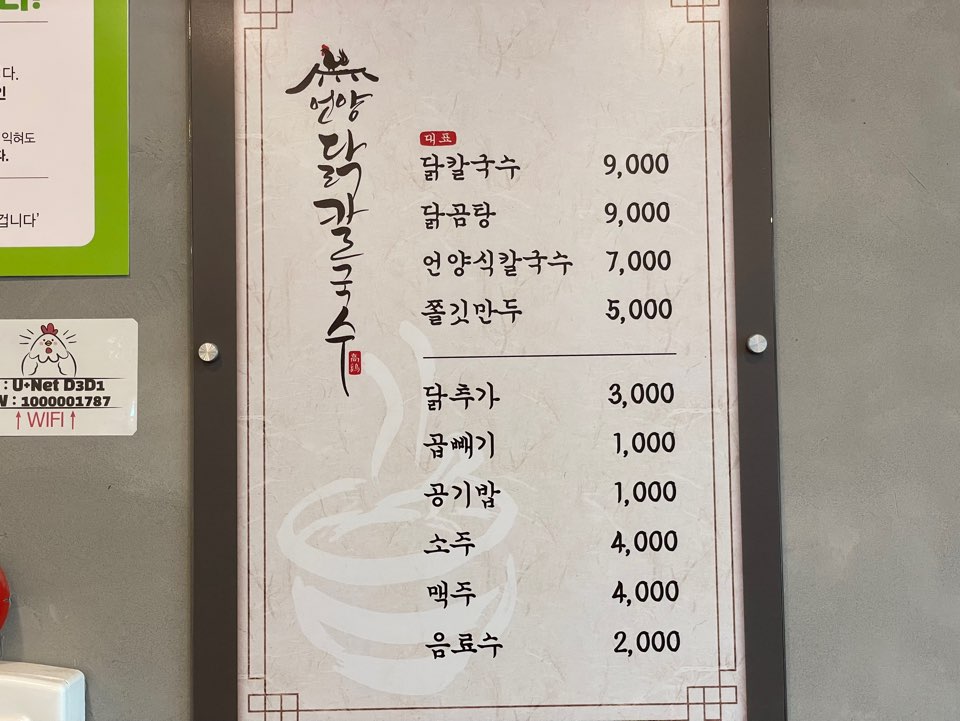 다.
인
익혀도
다.
겁니다'
: U+Net D3D1
W : 1000001787
↑WIFI↑
언양
닭칼국수
高鷄
대표
닭칼국수 9,000
닭곰탕 9,000
언양식칼국수 7,000
쫄깃만두 5,000
닭추가 3,000
곱빼기 1,000
공기밥 1,000
소주 4,000
맥주 4,000
음료수 2,000